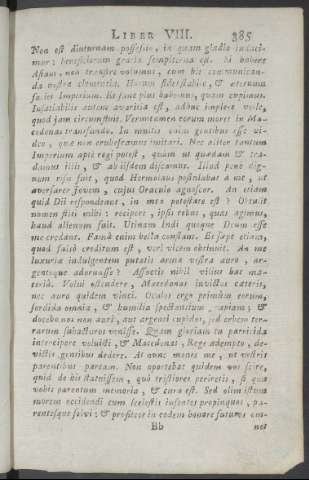 LIBER VIII. 385
Non est diuturnam possessio, in quam gladio induci-
mur: beneficiorum gratia sempiterna est. Si habere
Asiam, non transire volumus, cum his communican-
da nostra clementia. Horum fides stabile, & æternum
faciet Imperium. Et sane plus habemus, quam capimus.
Insatiabilis autem avaritia est, adhuc implere velle,
quod jam circumfluit. Verumtamen eorum mores in Ma-
cedonas transfundo. In multis enim gentibus esse vi-
deo, quæ non erubescamus imitari. Nec aliter tantum
Imperium apte regi potest, quam ut quædam & tra-
damus illis, & ab iisdem discamus. Illud pene dig-
num risu fuit, quod Hermolaus postulabat a me, ut
aversarer Jovem, cujus Oraculo agnoscor. An etiam
quid Dii respondeant, in mea potestate est? Obtulit
nomen filii mihi: recipere, ipsis rebus, quas agimus,
haud alienum fuit. Utinam Indi quoque Deum esse
me credant. Fama enim bella constant. Et sæpe etiam,
quod falso creditum est, veri vicem obtinuit. An me
luxuria indulgentem putatis arma vestra auro, ar-
gentoque adornasse? Assuetis nihil vilius hac ma-
teria. Volui ostendere, Macedonas invictos cæteris,
nec auro quidem vinci. Oculos ergo primum eorum,
sordida omnia, & humilia spectantium, capiam; &
docebo nos non auri, aut argenti cupidos, sed orbem ter-
rarum subacturos venisse. Quam gloriam tu parricida
intercipere voluisti, & Macedonas, Rege adempto, de-
victis gentibus dedere. At nunc mones me, ut vestris
parentibus parcam. Non oportebat quidem vos scire,
quid de his statuissem, quo tristiores periretis, si qua
vobis parentum memoria, & cura est. Sed olim istum
morem occidendi cum scelestis insontes propinquos, pa-
rentesque solvi: & profiteor in eodem honore futuros om-
Bb nes